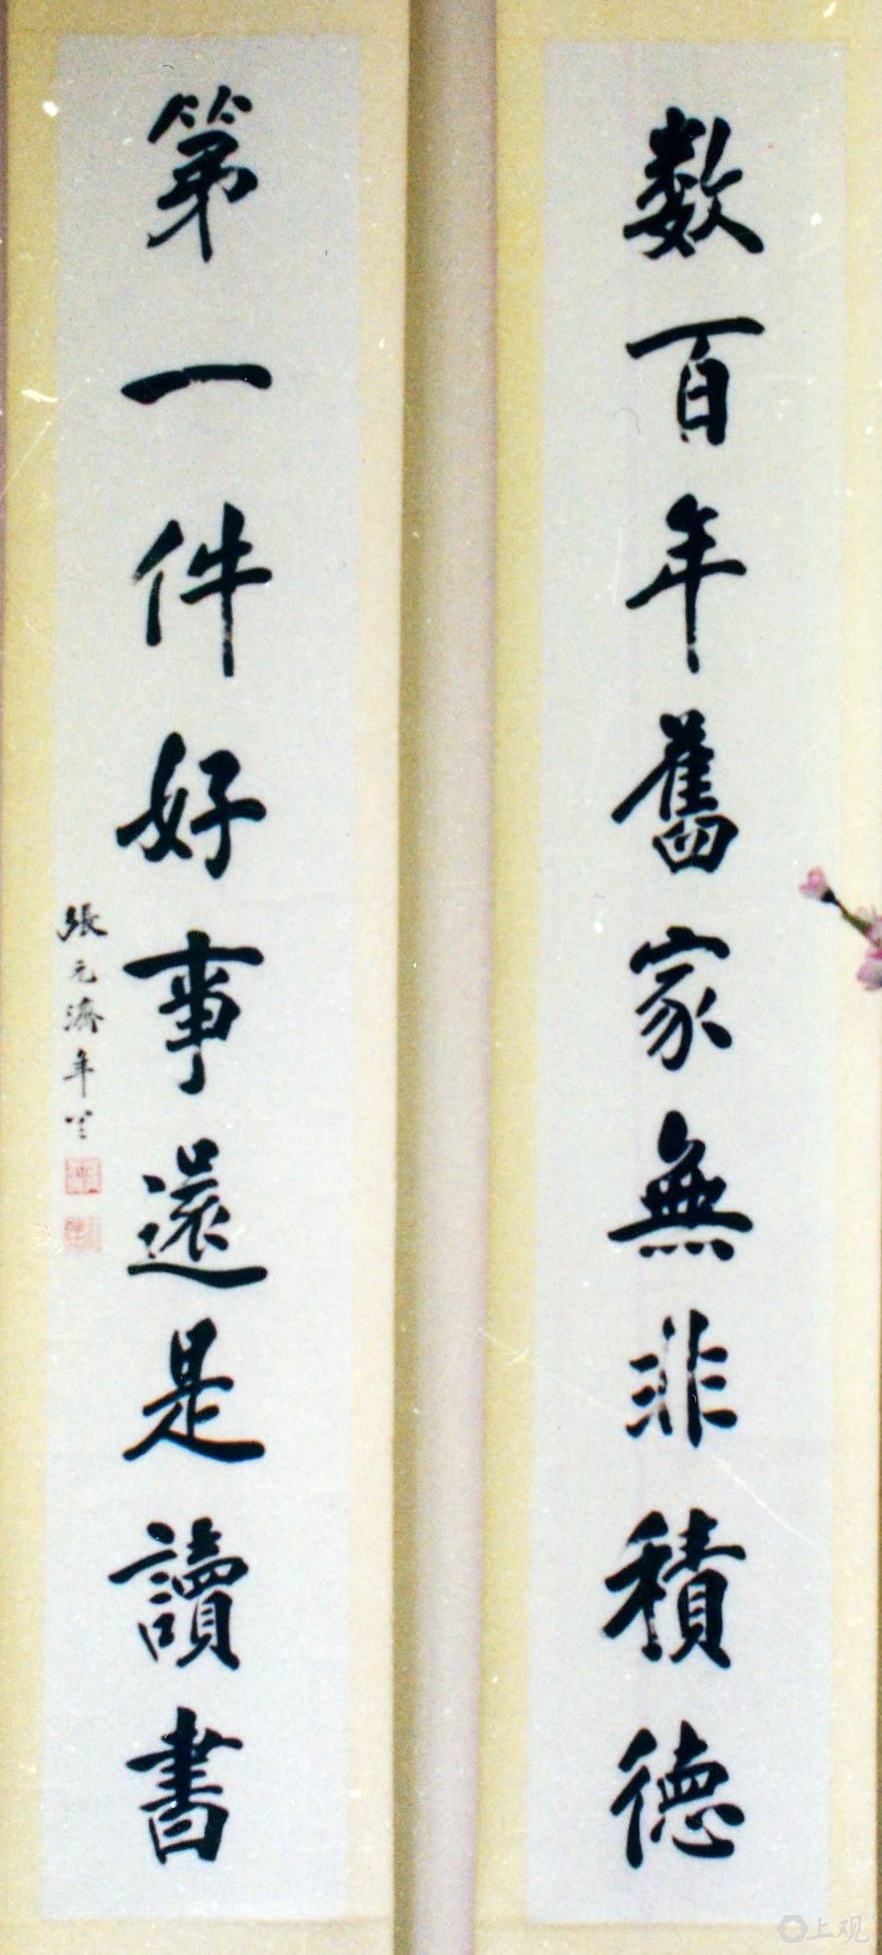 數百年舊家無非積德
第一件好事還是讀書
張元濟年
上观